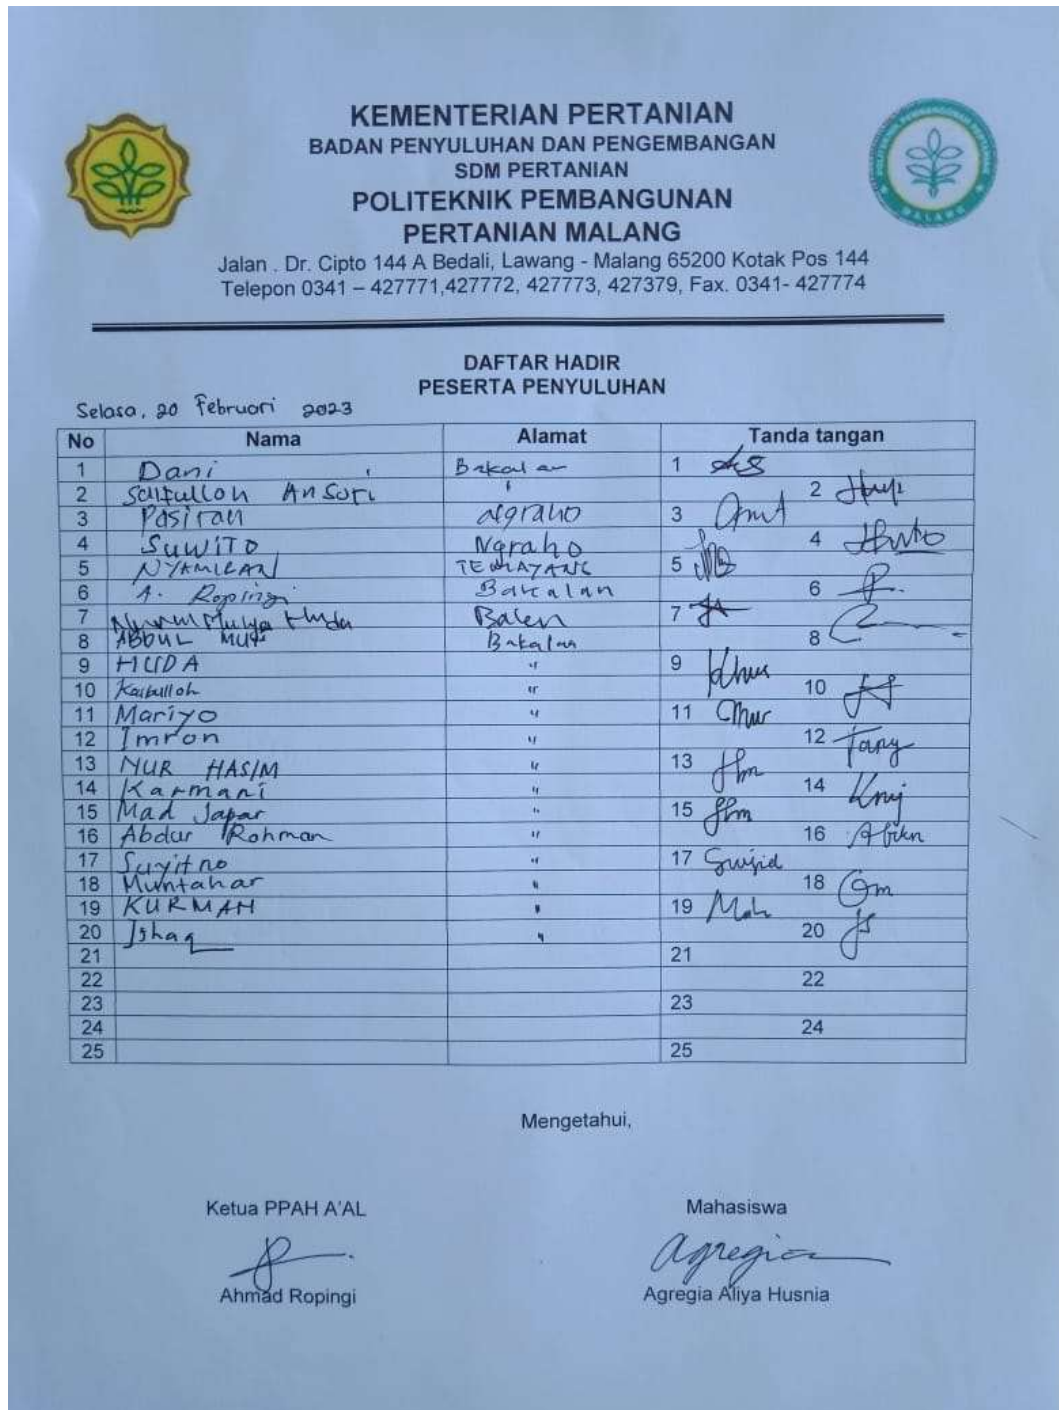 KEMENTERIAN PERTANIAN
BADAN PENYULUHAN DAN PENGEMBANGAN
SDM PERTANIAN
POLITEKNIK PEMBANGUNAN
PERTANIAN MALANG
Jalan . Dr. Cipto 144 A Bedali, Lawang - Malang 65200 Kotak Pos 144
Telepon 0341 – 427771,427772, 427773, 427379, Fax. 0341- 427774
MALANG
DAFTAR HADIR
PESERTA PENYULUHAN
Selasa, 20 Februari 2023
No Nama Alamat Tanda tangan
1 Dani Bakalan 1
2 Saifulloh Ansori " 2
3 Pasiran Ngraho 3
4 SUWITO Ngraho 4
5 NYAMIRAN TEMAYANG 5
6 A. Ropingi Bakalan 6
7 Huda Balen 7
8 ABDUL Bakalan 8
9 HUDA " 9
10 " 10
11 Mariyo " 11
12 Imron " 12
13 NUR HASIM " 13
14 Karmani " 14
15 Mad Japar " 15
16 Abdur Rohman " 16
17 Suyitno " 17
18 Muntahar " 18
19 KURMAN " 19
20 Ishaq " 20
21 21
22 22
23 23
24 24
25 25
Mengetahui,
Ketua PPAH A'AL Mahasiswa
Agregia
Ahmad Ropingi Agregia Aliya Husnia